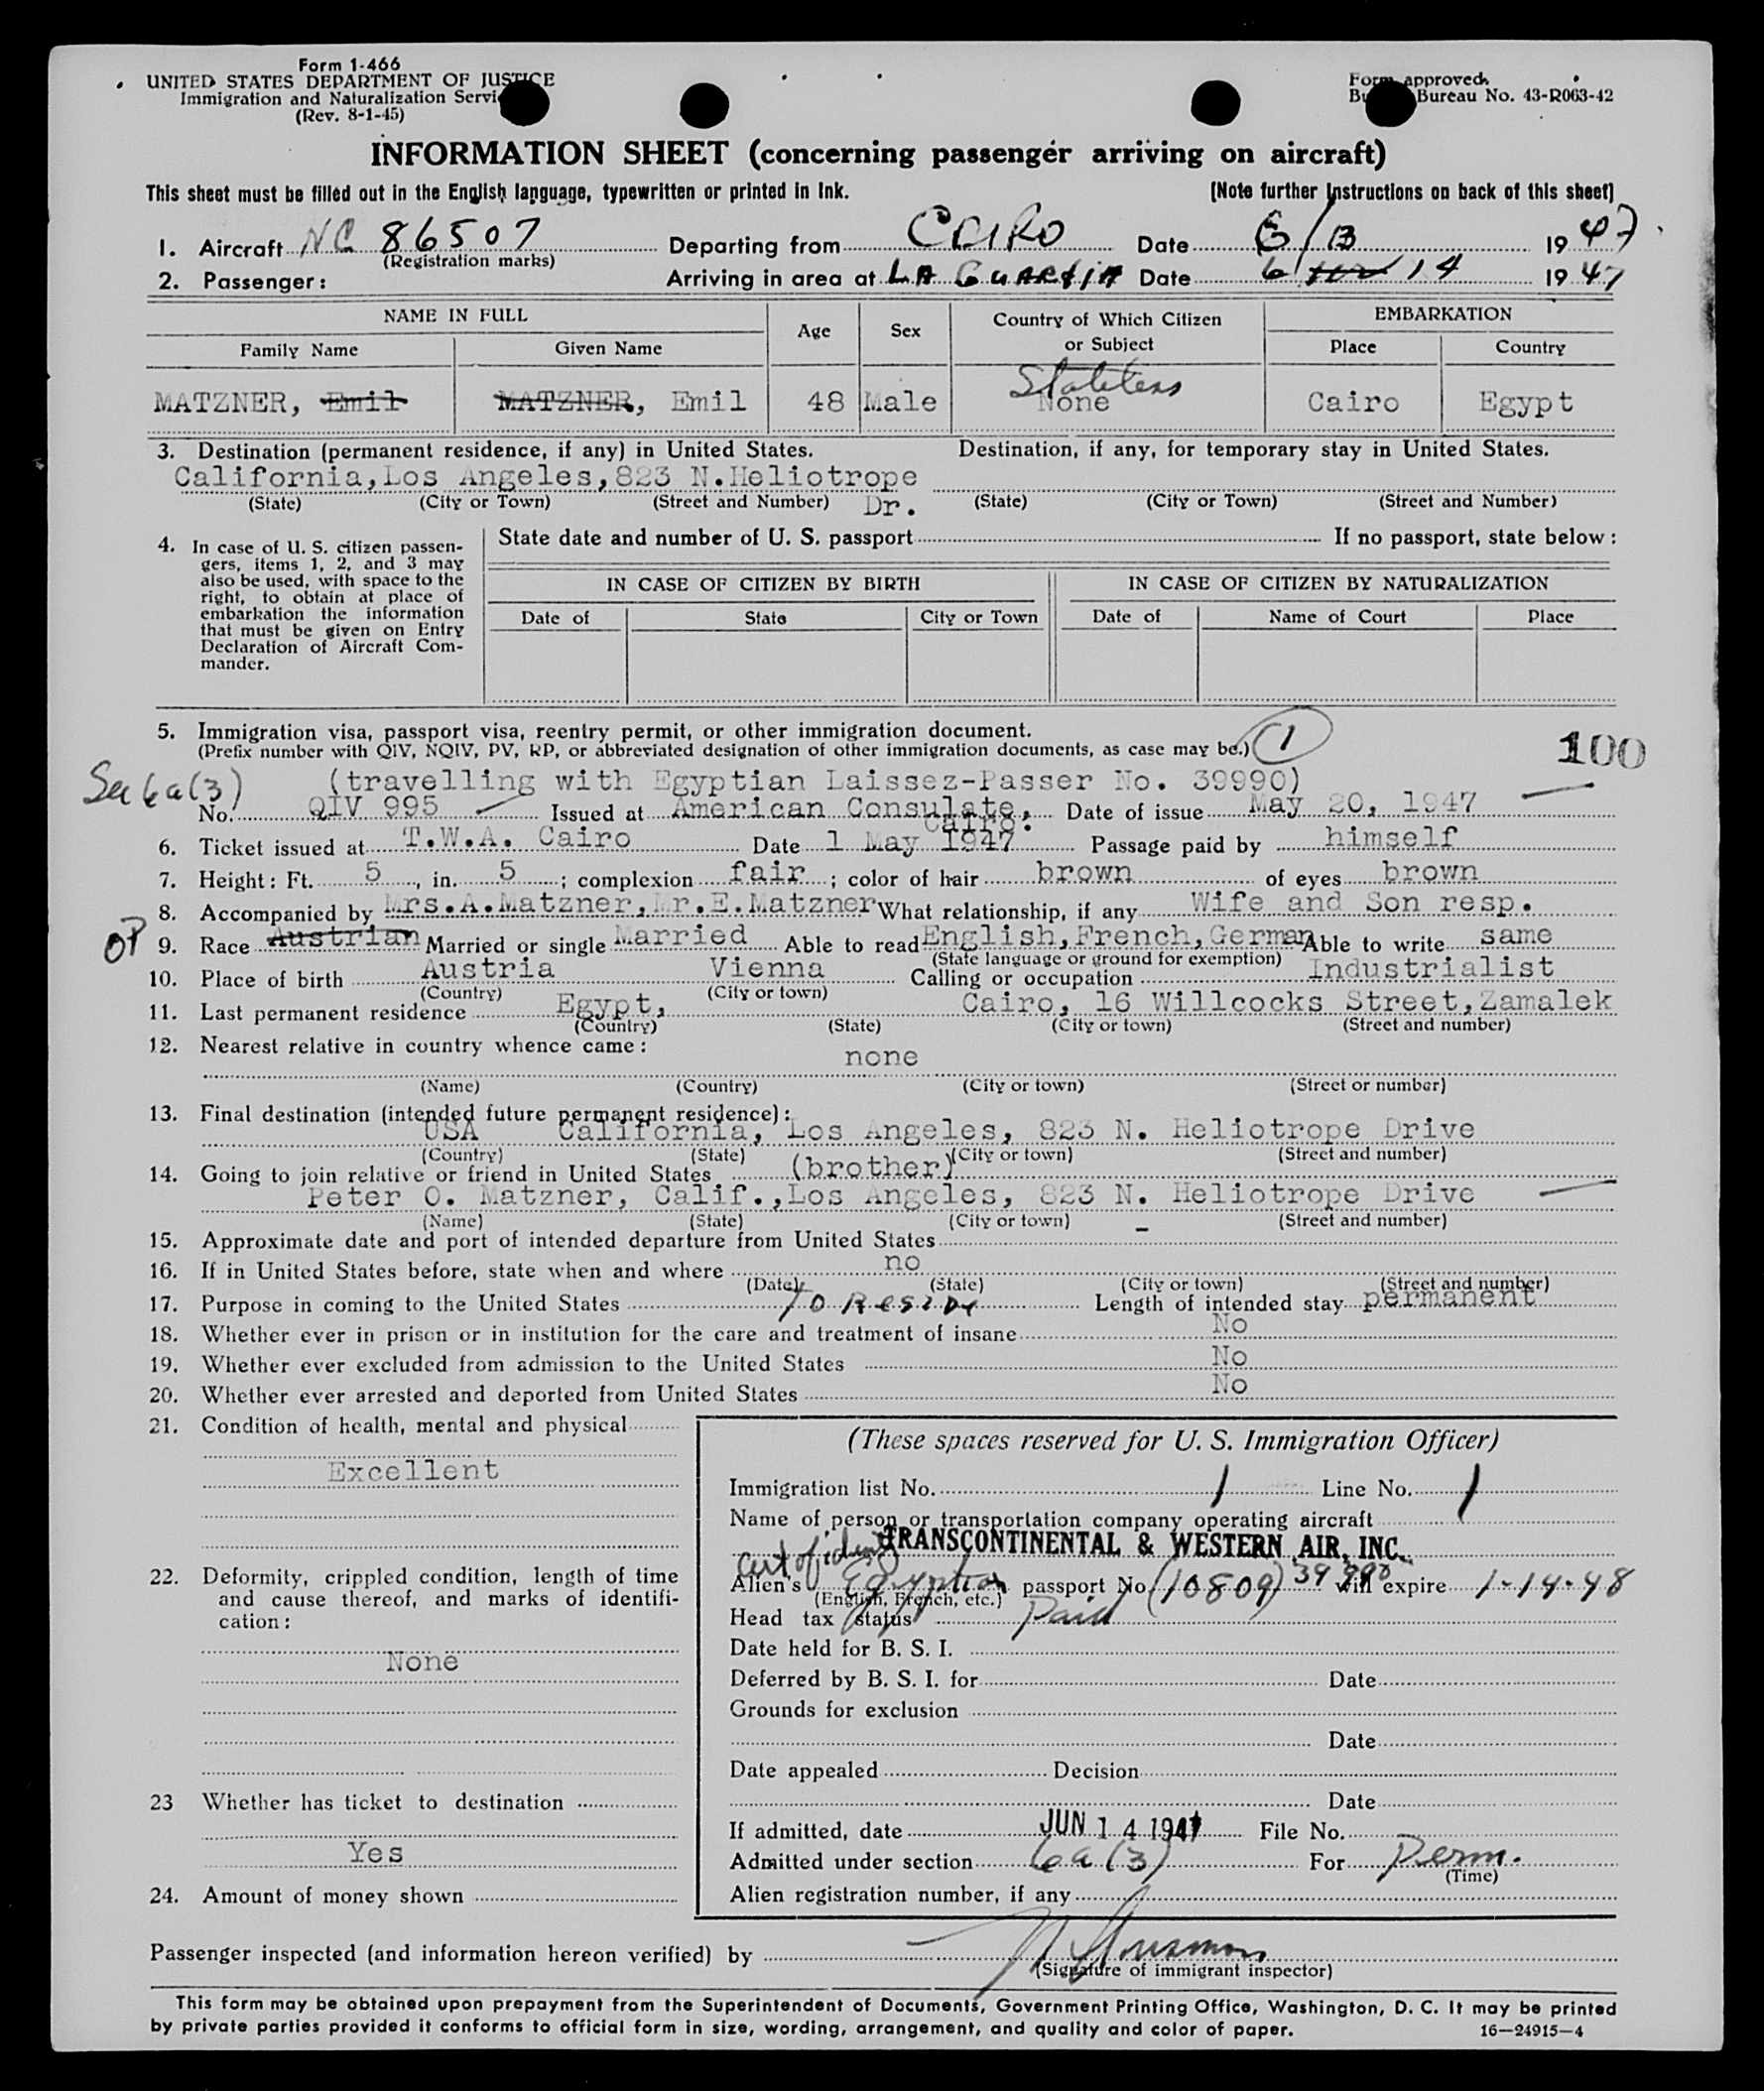 Form 1-466
UNITED STATES DEPARTMENT OF JUSTICE
Immigration and Naturalization Servi
(Rev. 8-1-45)
Form approved.
Bu Bureau No. 43-R063-42
INFORMATION SHEET (concerning passenger arriving on aircraft)
This sheet must be filled out in the English language, typewritten or printed in ink. (Note further instructions on back of this sheet)
1. Aircraft NC 86507 Departing from CAIRO Date 6/13 1947
(Registration marks)
2. Passenger: Arriving in area at LA GUARDIA Date 6 14 1947
NAME IN FULL Age Sex Country of Which Citizen or Subject EMBARKATION
Family Name Given Name Place Country
Stateless
MATZNER, Emil MATZNER, Emil 48 Male None Cairo Egypt
3. Destination (permanent residence, if any) in United States. Destination, if any, for temporary stay in United States.
California, Los Angeles, 823 N. Heliotrope
(State) (City or Town) (Street and Number) Dr. (State) (City or Town) (Street and Number)
4. In case of U. S. citizen passen-
gers, items 1, 2, and 3 may
also be used, with space to the
right, to obtain at place of
embarkation the information
that must be given on Entry
Declaration of Aircraft Com-
mander.
State date and number of U. S. passport If no passport, state below:
IN CASE OF CITIZEN BY BIRTH IN CASE OF CITIZEN BY NATURALIZATION
Date of State City or Town Date of Name of Court Place
5. Immigration visa, passport visa, reentry permit, or other immigration document.
(Prefix number with QIV, NQIV, PV, RP, or abbreviated designation of other immigration documents, as case may be.) 1
100
Sec 6a(3) (travelling with Egyptian Laissez-Passer No. 39990)
No. QIV 995 Issued at American Consulate, Date of issue May 20, 1947
Cairo.
6. Ticket issued at T.W.A. Cairo Date 1 May 1947 Passage paid by himself
7. Height: Ft. 5, in. 5; complexion fair; color of hair brown of eyes brown
8. Accompanied by Mrs.A.Matzner,Mr.E.Matzner What relationship, if any Wife and Son resp.
9. Race Austrian Married or single Married Able to read English,French,German Able to write same
(State language or ground for exemption)
10. Place of birth Austria Vienna Calling or occupation Industrialist
(Country) (City or town)
11. Last permanent residence Egypt, Cairo, 16 Willcocks Street, Zamalek
(Country) (State) (City or town) (Street and number)
12. Nearest relative in country whence came:
none
(Name) (Country) (City or town) (Street or number)
13. Final destination (intended future permanent residence):
USA California, Los Angeles, 823 N. Heliotrope Drive
(Country) (State) (City or town) (Street and number)
14. Going to join relative or friend in United States (brother)
Peter O. Matzner, Calif., Los Angeles, 823 N. Heliotrope Drive
(Name) (State) (City or town) (Street and number)
15. Approximate date and port of intended departure from United States -
16. If in United States before, state when and where no
(Date) (State) (City or town) (Street and number)
17. Purpose in coming to the United States TO Reside Length of intended stay permanent
18. Whether ever in prison or in institution for the care and treatment of insane No
19. Whether ever excluded from admission to the United States No
20. Whether ever arrested and deported from United States No
21. Condition of health, mental and physical
Excellent
22. Deformity, crippled condition, length of time
and cause thereof, and marks of identifi-
cation:
None
23 Whether has ticket to destination
Yes
24. Amount of money shown
(These spaces reserved for U. S. Immigration Officer)
Immigration list No. 1 Line No. 1
Name of person or transportation company operating aircraft
TRANSCONTINENTAL & WESTERN AIR, INC.
Cert of ident
Alien's Egyptian passport No. (10809) 39990 will expire 1-14-48
(English, French, etc.)
Head tax status Paid
Date held for B. S. I.
Deferred by B. S. I. for Date
Grounds for exclusion
Date
Date appealed Decision
Date
If admitted, date JUN 14 1947 File No.
Admitted under section 6a(3) For Perm.
(Time)
Alien registration number, if any
Passenger inspected (and information hereon verified) by
(Signature of immigrant inspector)
This form may be obtained upon prepayment from the Superintendent of Documents, Government Printing Office, Washington, D. C. It may be printed
by private parties provided it conforms to official form in size, wording, arrangement, and quality and color of paper. 16—24915-4